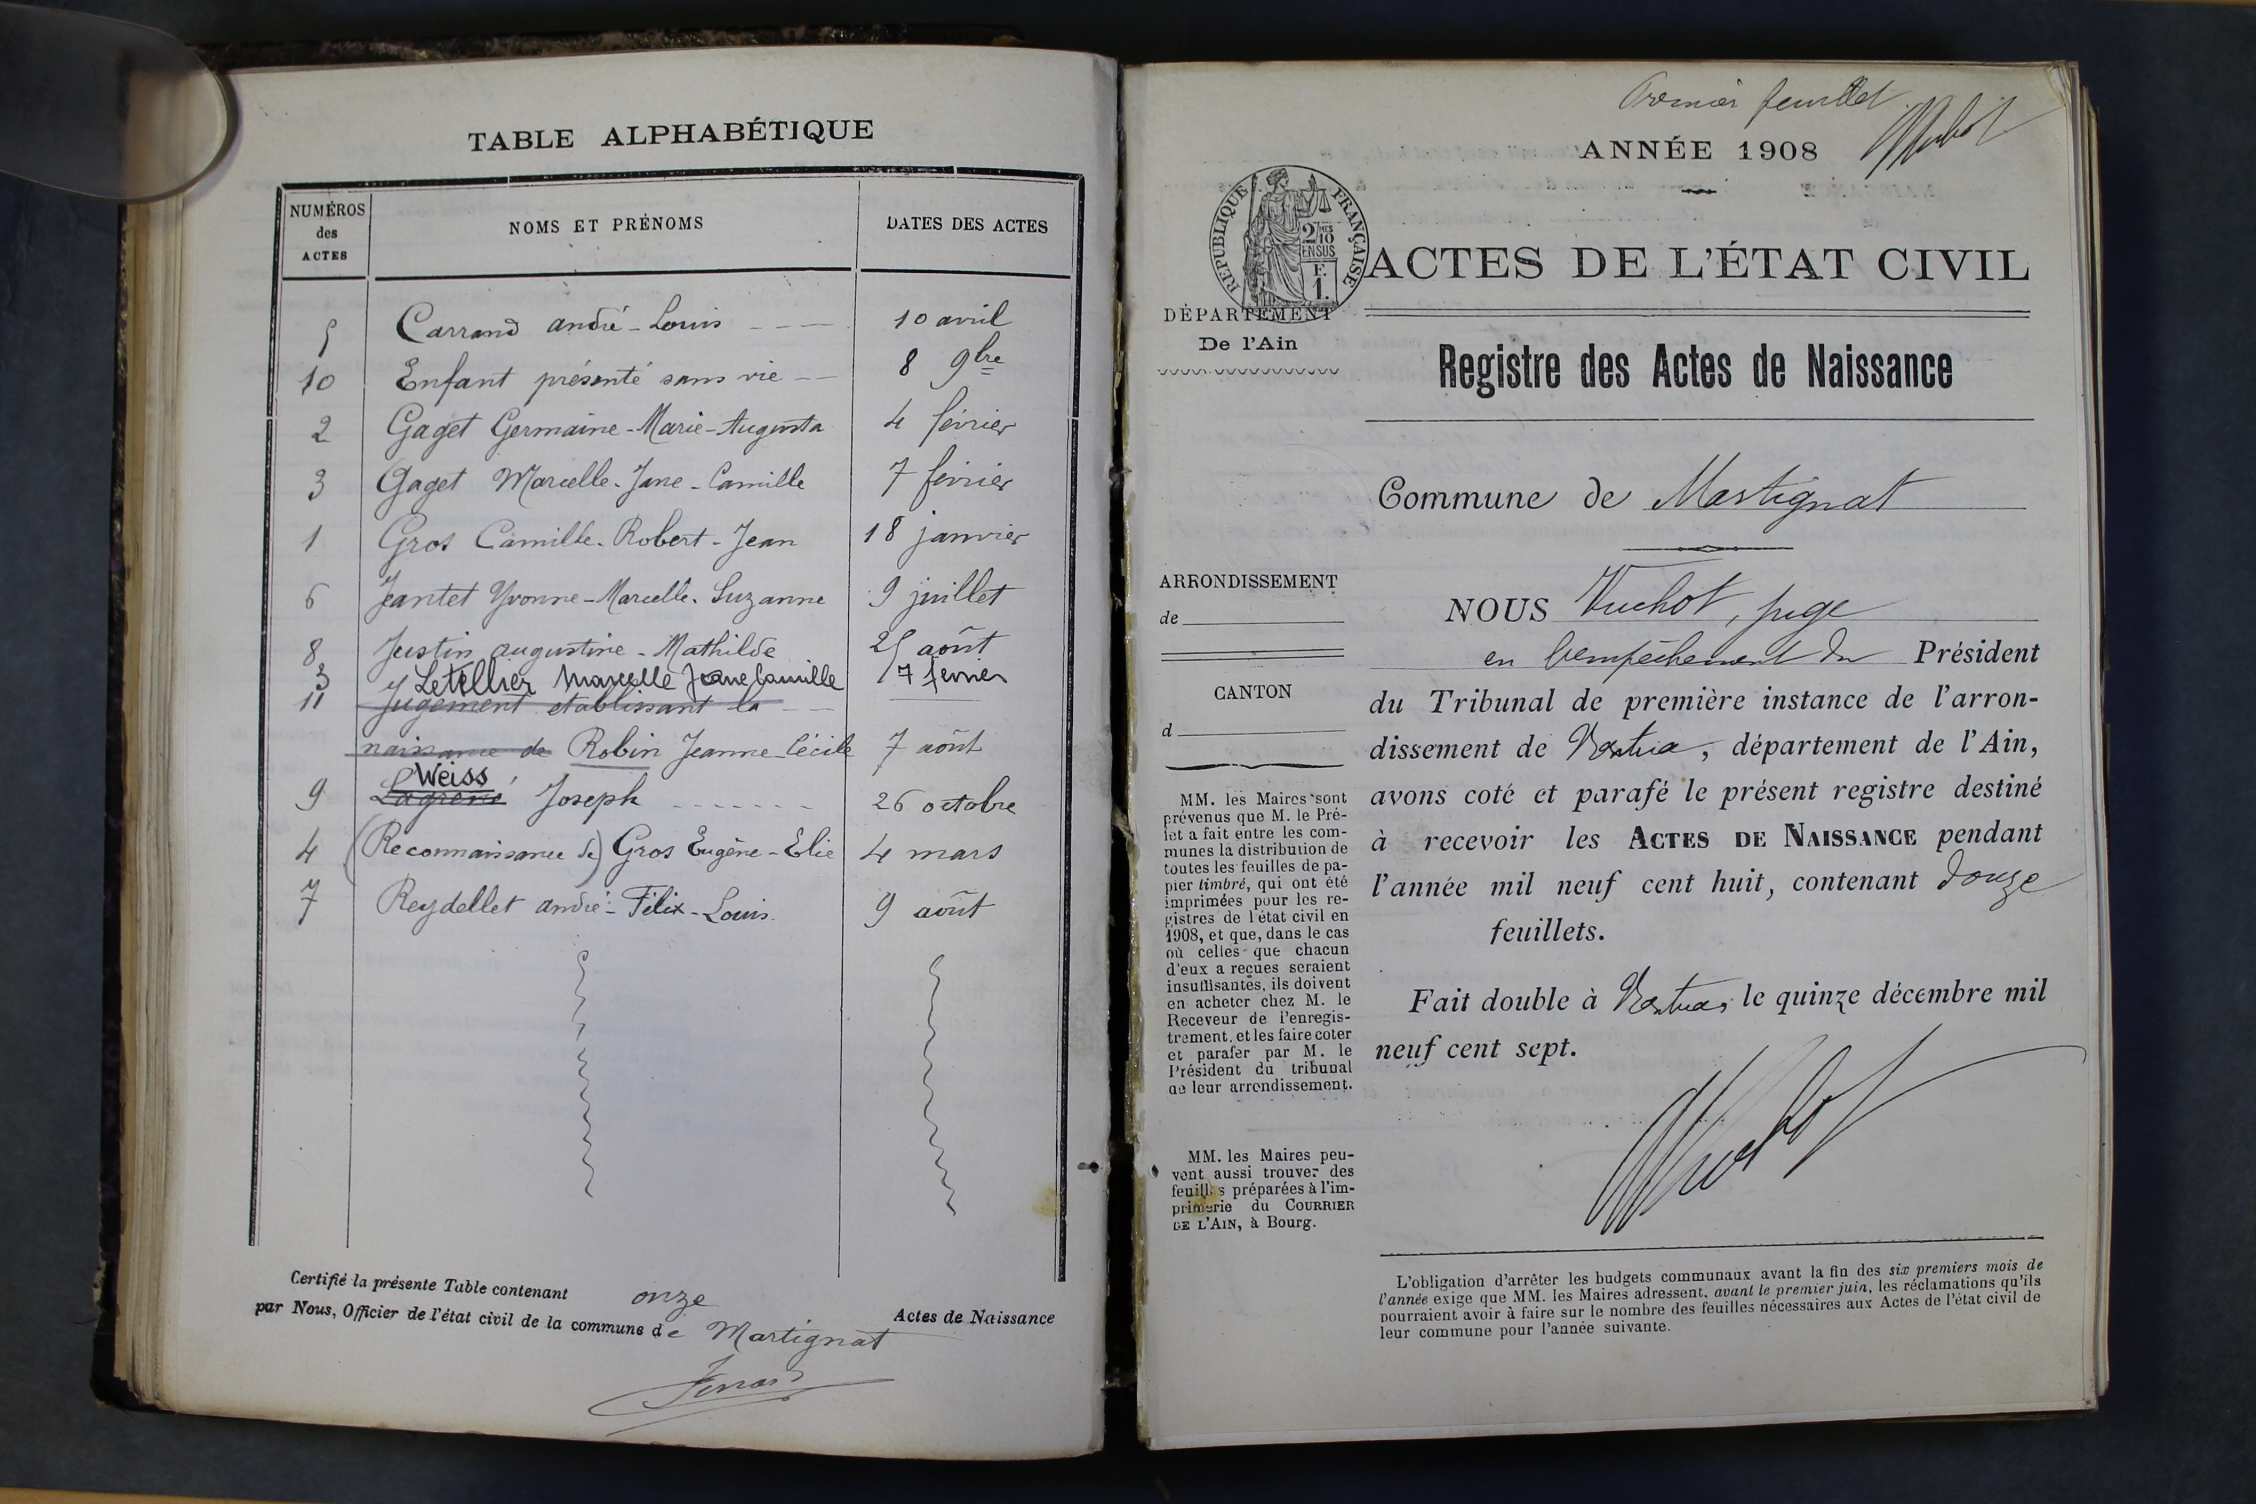 TABLE ALPHABÉTIQUE
NUMÉROS des ACTES NOMS ET PRÉNOMS DATES DES ACTES
5 Carrand andré-Louis 10 avril
10 Enfant présenté sans vie 8 9bre
2 Gaget Germaine-Marie-Augusta 4 février
3 Gaget Marcelle-Jane-Camille 7 février
1 Gros Camille-Robert-Jean 18 janvier
6 Jeantet Yvonne-Marcelle-Suzanne 9 juillet
8 Justin augustine-Mathilde 25 août
3 Letellier Marcelle Jane Camille 7 fevrier
11 Jugement établissant la
naissance de Robin Jeanne-Cécile 7 août
Weiss
9 Lagrené Joseph 26 octobre
4 (Reconnaissance de) Gros Eugène-Elie 4 mars
7 Reydellet andré-Félix-Louis 9 août
Certifié la présente Table contenant onze Actes de Naissance
par Nous, Officier de l'état civil de la commune de Martignat
Premier feuillet
ANNÉE 1908
RÉPUBLIQUE FRANÇAISE
2/10 EN SUS
F. 1.
ACTES DE L'ÉTAT CIVIL
DÉPARTEMENT
De l'Ain
Registre des Actes de Naissance
Commune de Martignat
ARRONDISSEMENT
de
CANTON
d
NOUS Vuchot, juge
en l'empêchement du Président
du Tribunal de première instance de l'arron-
dissement de Nantua, département de l'Ain,
avons coté et parafé le présent registre destiné
à recevoir les ACTES DE NAISSANCE pendant
l'année mil neuf cent huit, contenant douze
feuillets.
Fait double à Nantua, le quinze décembre mil
neuf cent sept.
MM. les Maires sont
prévenus que M. le Pré-
fet a fait entre les com-
munes la distribution de
toutes les feuilles de pa-
pier timbré, qui ont été
imprimées pour les re-
gistres de l'état civil en
1908, et que, dans le cas
où celles que chacun
d'eux a reçues seraient
insuffisantes, ils doivent
en acheter chez M. le
Receveur de l'enregis-
trement, et les faire coter
et parafer par M. le
Président du tribunal
de leur arrondissement.
MM. les Maires peu-
vent aussi trouver des
feuilles préparées à l'im-
primerie du COURRIER
DE L'AIN, à Bourg.
L'obligation d'arrêter les budgets communaux avant la fin des six premiers mois de
l'année exige que MM. les Maires adressent, avant le premier juin, les réclamations qu'ils
pourraient avoir à faire sur le nombre des feuilles nécessaires aux Actes de l'état civil de
leur commune pour l'année suivante.